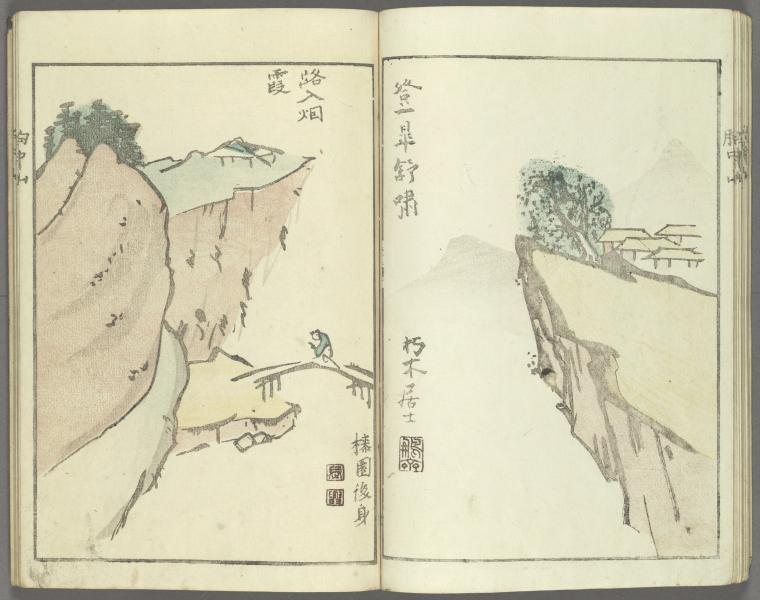 胸中山
登皐舒嘯
朽木居士
路入烟
霞
榛園後身
胸中山